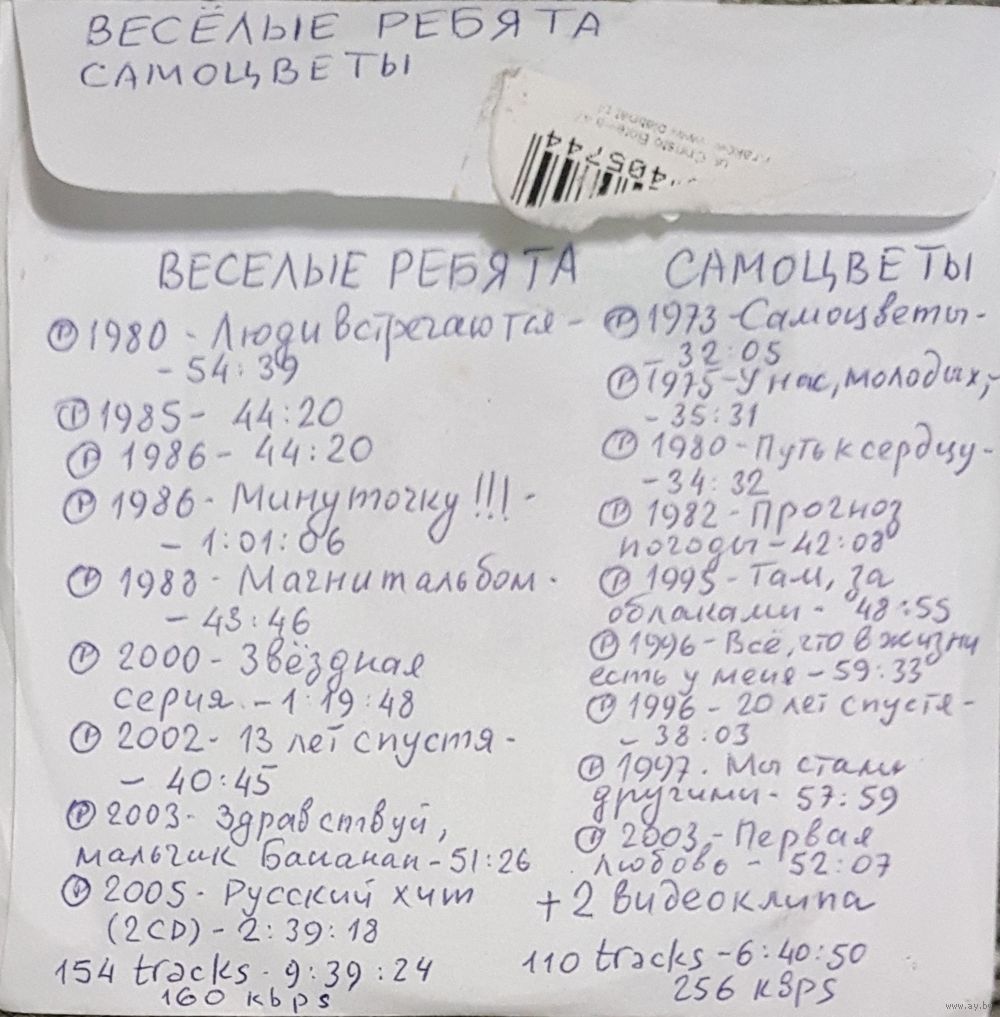 ВЕСЁЛЫЕ РЕБЯТА
САМОЦВЕТЫ
405744
ВЕСЕЛЫЕ РЕБЯТА
Ⓟ 1980 - Люди встречаются -
- 54:39
Ⓟ 1985 - 44:20
Ⓟ 1986 - 44:20
Ⓟ 1986 - Минуточку!!! -
- 1:01:06
Ⓟ 1988 - Магнитальбом -
- 43:46
Ⓟ 2000 - Звёздная
серия - 1:19:48
Ⓟ 2002 - 13 лет спустя -
- 40:45
Ⓟ 2003 - Здравствуй,
мальчик Бананан - 51:26
Ⓟ 2005 - Русский хит
(2CD) - 2:39:18
154 tracks - 9:39:24
160 kbps
САМОЦВЕТЫ
Ⓟ 1973 - Самоцветы -
- 32:05
Ⓟ 1975 - У нас, молодых, -
- 35:31
Ⓟ 1980 - Путь к сердцу -
- 34:32
Ⓟ 1982 - Прогноз
погоды - 42:08
Ⓟ 1995 - Там, за
облаками - 48:55
Ⓟ 1996 - Всё, что в жизни
есть у меня - 59:33
Ⓟ 1996 - 20 лет спустя -
- 38:03
Ⓟ 1997. Мы стали
другими - 57:59
Ⓟ 2003 - Первая
любовь - 52:07
+ 2 видеоклипа
110 tracks - 6:40:50
256 KBPS